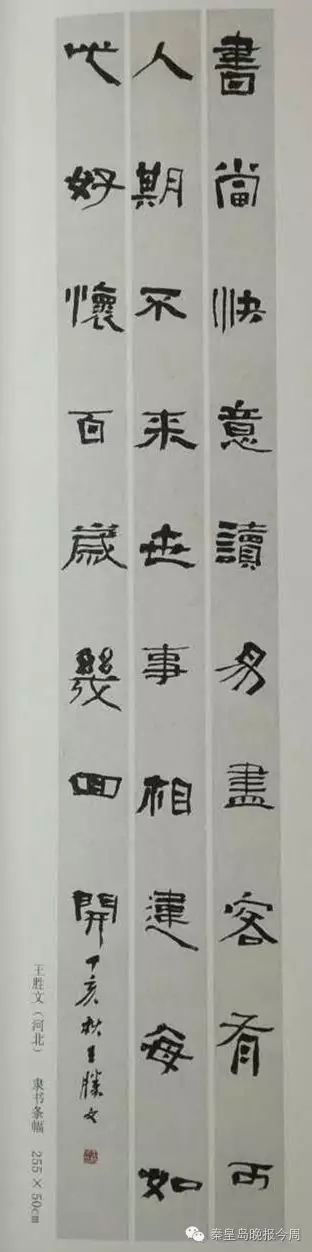 書當快意讀易盡客有可
人期不来世事相違每如
此好懷百歲幾回開
丁亥秋王勝文
王胜文（河北） 隶书条幅 255×50cm
秦皇岛晚报今周